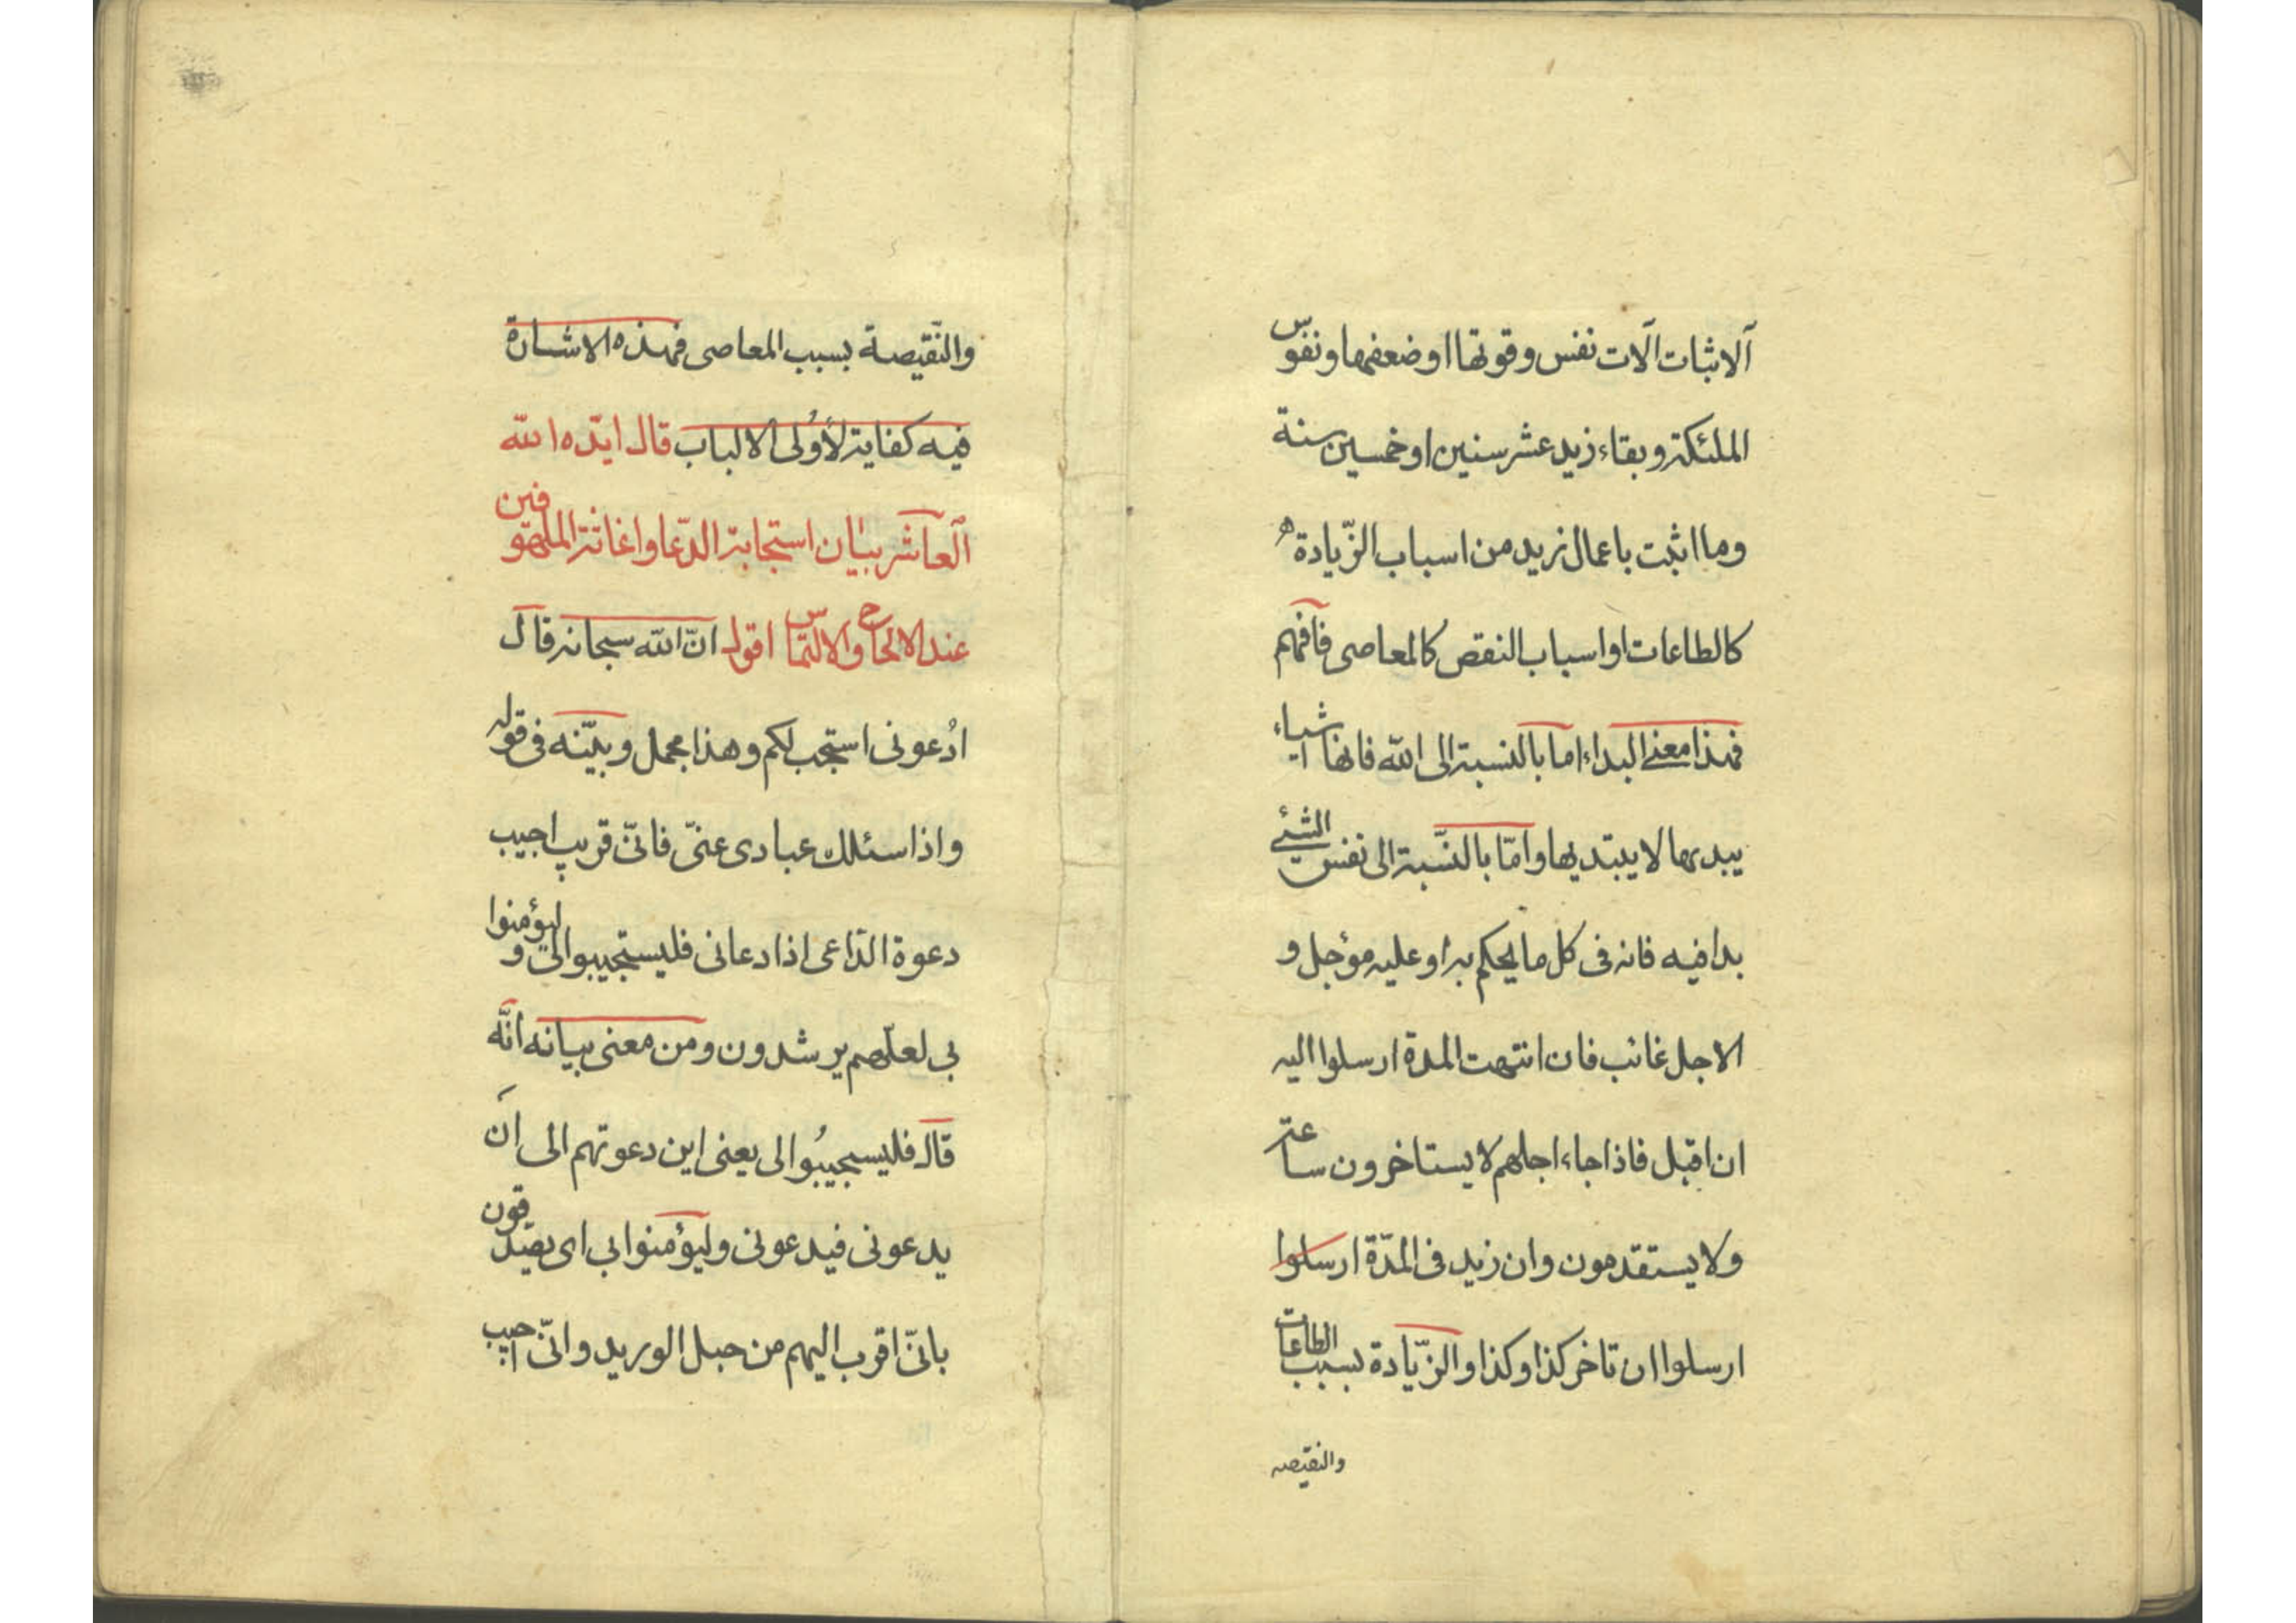 آلاثبات آلات نفس وقوتها او ضعفها ونفوس
الملئكة وبقاء زيد عشر سنين او خمسين سنة
وما اثبت باعمال زيد من اسباب الزّيادة
كالطاعات او اسباب النقص كالمعاصى فافهم
فهذا معنى البداء اما بالنسبة الى الله فانها اشياء
يبديها لا يبتديها وامّا بالنّسبة الى نفس الشئ
بدا فيه فانه فى كل ما يحكم به او عليه مؤجل و
الاجل غائب فان انتهت المدة ارسلوا اليه
ان اقبل فاذا جاء اجلهم لا يستاخرون ساعة
ولا يستقدمون وان زيد فى المدّة ارسلوا
ارسلوا ان تاخر كذا وكذا والزّيادة بسبب الطاعات
والنقيصه
والنّقيصة بسبب المعاصى فهذه الاشارة
فيه كفاية لأولى الالباب قال ايّده الله
العاشر بيان استجابة الدّعا واغاثة الملهوفين
عند الالحاح والالتماس اقول انّ الله سبحانه قال
ادُعونى استجب لكم وهذا مجمل وبيّنه فى قوله
واذا سئلك عبادى عنىّ فانىّ قريب اجيب
دعوة الدّاعى اذا دعانى فليستجيبوا لى وليؤمنوا
بى لعلّهم يرشدون ومن معنى بيانه انّه
قال فليسجيبُوا لى يعنى اين دعوتهم الى ان
يدعونى فيدعونى وليؤمنوا بى اى يصدّقون
بانىّ اقرب اليهم من حبل الوريد وانىّ اجيب